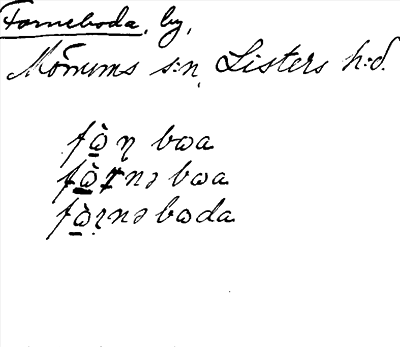 Forneboda, by,
Mörrums s:n, Listers h:d.
fɷ̀ɳ bɷa
fɷ̀rnə bɷa
fɷ̀ɽnə bɷda